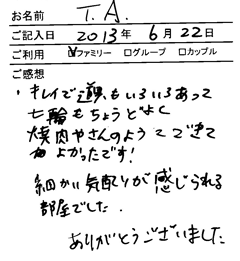 お名前 T.A.
ご記入日 2013年 6月 22日
ご利用 ☑ファミリー □グループ □カップル
ご感想
・キレイで道具もいろいろあって
七輪もちょうどよく
焼肉やさんのようてできて
よかったです!
細かい気配りが感じられる
部屋でした.
ありがとうございました